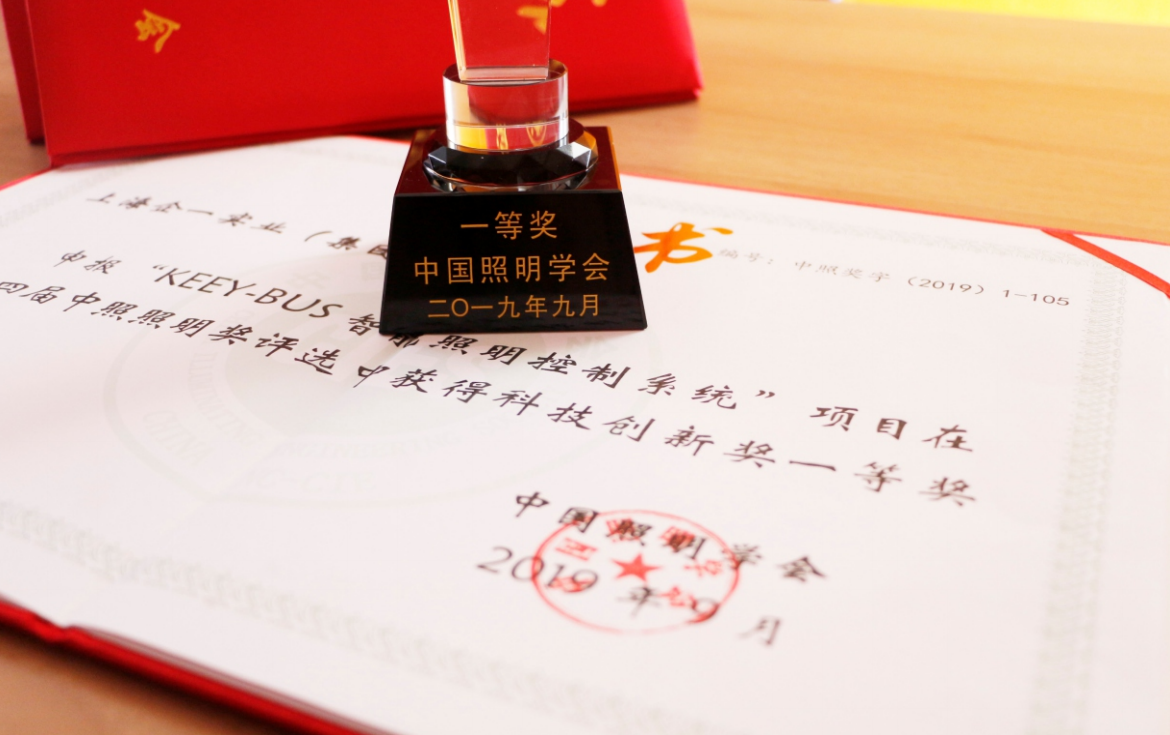 会
一等奖
中国照明学会
二〇一九年九月
书
编号：中照奖字（2019）1-105
上海企一实业（集团
申报“KEEY-BUS 智能照明控制系统”项目在
四届中照照明奖评选中获得科技创新奖一等奖
中国照明学会
2019 年 9 月